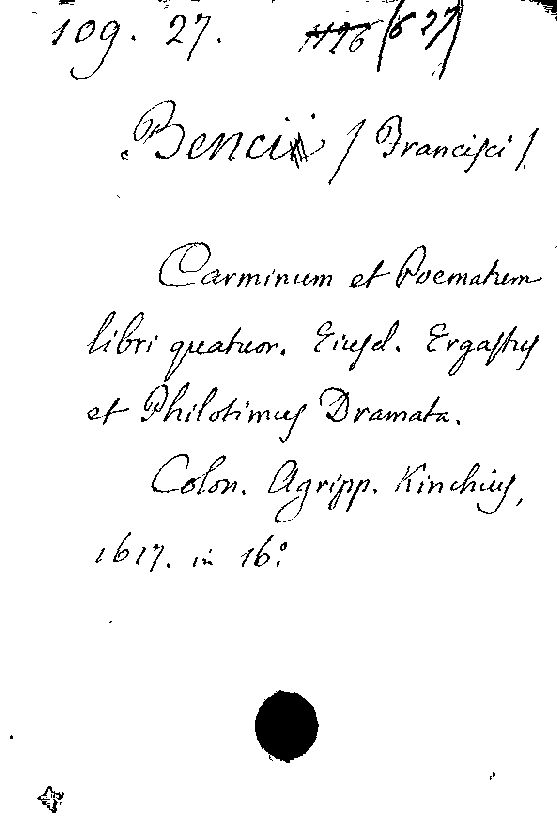 109. 27. 1126 (627)
Bencii / Francisci /
Carminum et Poematum
libri quatuor. Eiusd. Ergastus
et Philotimus Dramata.
Colon. Agripp. Kinchius,
1617. in 16º